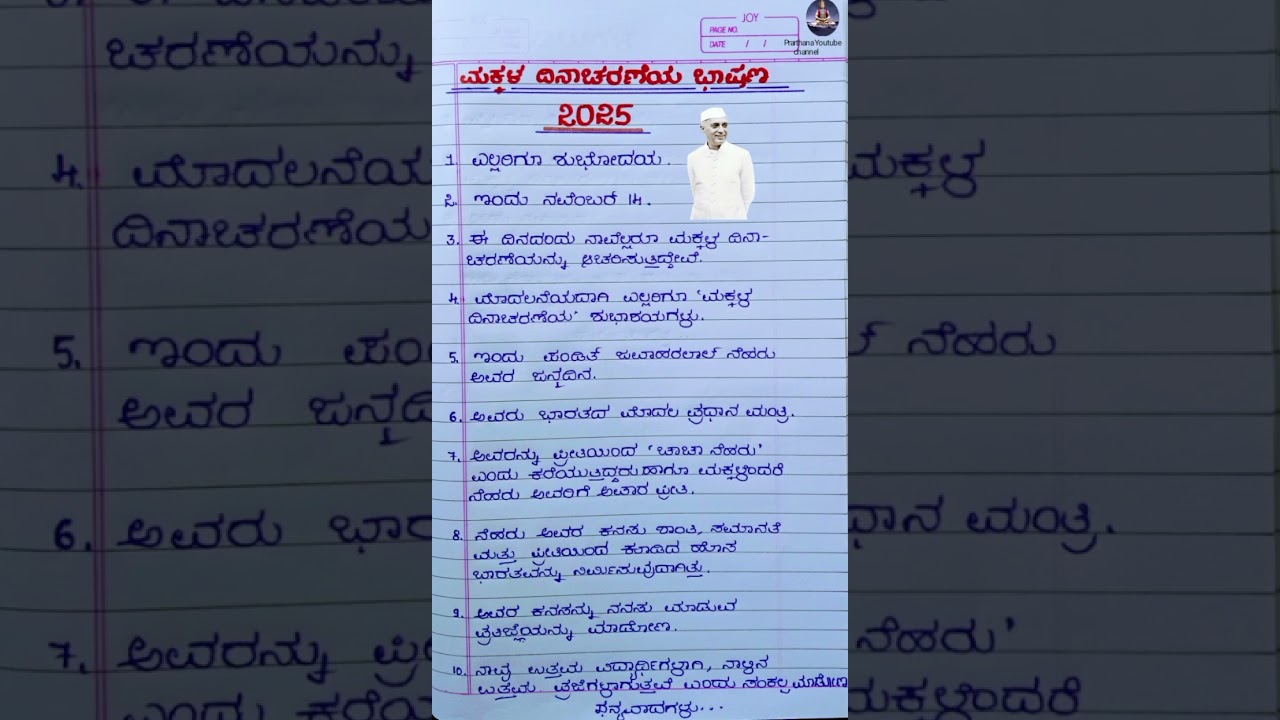 JOY
PAGE NO.
DATE / /
Prarthana Youtube
channel
ಮಕ್ಕಳ ದಿನಾಚರಣೆಯ ಭಾಷಣ
2025
1. ಎಲ್ಲರಿಗೂ ಶುಭೋದಯ.
2. ಇಂದು ನವೆಂಬರ್ 14.
3. ಈ ದಿನದಂದು ನಾವೆಲ್ಲರೂ ಮಕ್ಕಳ ದಿನಾ-
ಚರಣೆಯನ್ನು ಆಚರಿಸುತ್ತಿದ್ದೇವೆ.
4. ಮೊದಲನೆಯದಾಗಿ ಎಲ್ಲರಿಗೂ 'ಮಕ್ಕಳ
ದಿನಾಚರಣೆಯ' ಶುಭಾಶಯಗಳು.
5. ಇಂದು ಪಂಡಿತ್ ಜವಾಹರಲಾಲ್ ನೆಹರು
ಅವರ ಜನ್ಮದಿನ.
6. ಅವರು ಭಾರತದ ಮೊದಲ ಪ್ರಧಾನ ಮಂತ್ರಿ.
7. ಅವರನ್ನು ಪ್ರೀತಿಯಿಂದ 'ಚಾಚಾ ನೆಹರು'
ಎಂದು ಕರೆಯುತ್ತಿದ್ದರು ಹಾಗೂ ಮಕ್ಕಳೆಂದರೆ
ನೆಹರು ಅವರಿಗೆ ಅಪಾರ ಪ್ರೀತಿ.
8. ನೆಹರು ಅವರ ಕನಸು ಶಾಂತಿ, ಸಮಾನತೆ
ಮತ್ತು ಪ್ರೀತಿಯಿಂದ ಕೂಡಿದ ಹೊಸ
ಭಾರತವನ್ನು ನಿರ್ಮಿಸುವುದಾಗಿತ್ತು.
9. ಅವರ ಕನಸನ್ನು ನನಸು ಮಾಡುವ
ಪ್ರತಿಜ್ಞೆಯನ್ನು ಮಾಡೋಣ.
10. ನಾವು ಉತ್ತಮ ವಿದ್ಯಾರ್ಥಿಗಳಾಗಿ, ನಾಳಿನ
ಉತ್ತಮ ಪ್ರಜೆಗಳಾಗುತ್ತೇವೆ ಎಂದು ಸಂಕಲ್ಪ ಮಾಡೋಣ
ಧನ್ಯವಾದಗಳು...